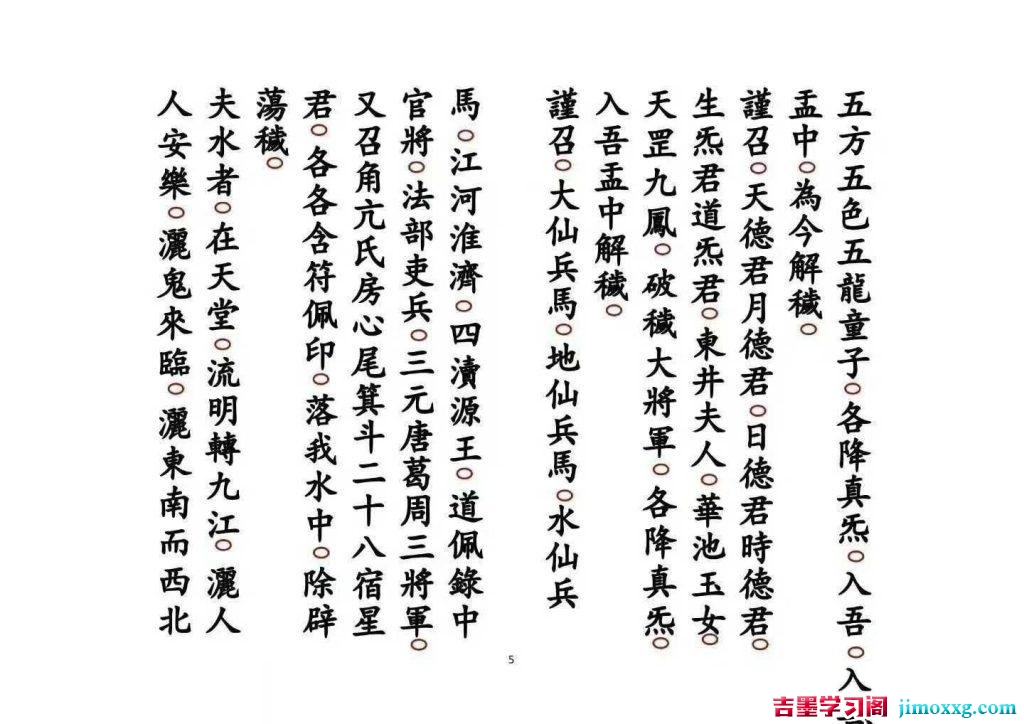 五方五色五龍童子。各降真炁。入吾。入
盂中。為今解穢。
謹召。天德君月德君。日德君時德君。
生炁君道炁君。東井夫人。華池玉女。
天罡九鳳。破穢大將軍。各降真炁。
入吾盂中解穢。
謹召。大仙兵馬。地仙兵馬。水仙兵
馬。江河淮濟。四瀆源王。道佩錄中
官將。法部吏兵。三元唐葛周三將軍。
又召角亢氐房心尾箕斗二十八宿星
君。各各含符佩印。落我水中。除辟
蕩穢。
夫水者。在天堂。流明轉九江。灑人
人安樂。灑鬼來臨。灑東南而西北
5
吉墨学习阁 jimoxxg.com